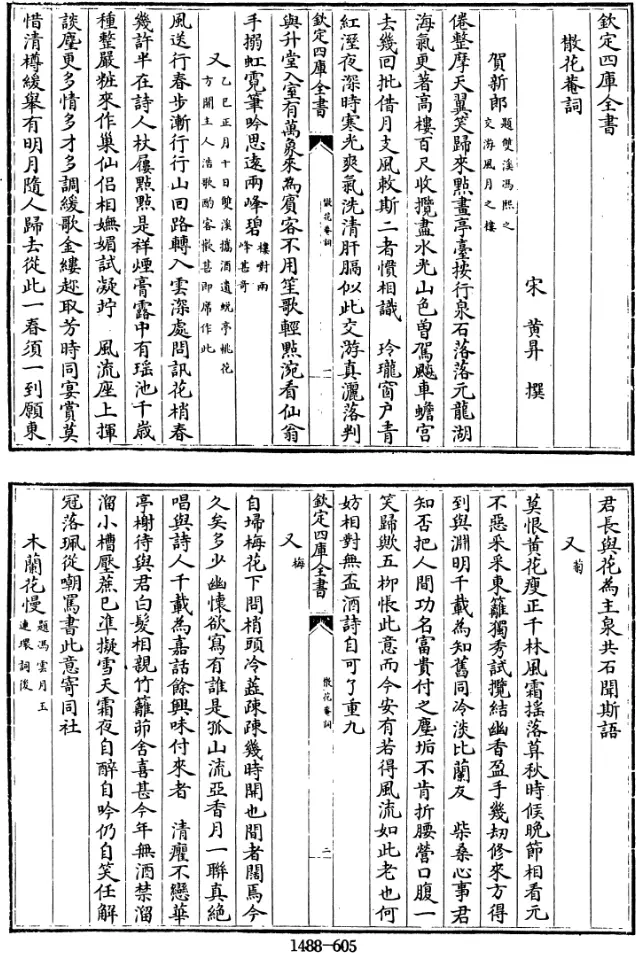 欽定四庫全書
散花菴詞
宋 黃昇 撰
賀新郎題雙溪馮熙之交游風月之樓
倦整摩天翼笑歸來點畫亭臺按行泉石落落元龍湖
海氣更著高樓百尺收攬盡水光山色曾駕飈車蟾宮
去幾回批借月支風敕斯二者慣相識 玲瓏窗户青
紅溼夜深時寒光爽氣洗清肝膈似此交游真灑落判
欽定四庫全書
散花菴詞
一
與升堂入室有萬象來為賓客不用笙歌輕點涴看仙翁
手搦虹霓筆吟思遠兩峰碧樓對兩峰甚奇
又乙巳正月十日雙溪攜酒遺蛻亭桃花方開主人浩歌酌客歡甚即席作此
風送行春步漸行行山回路轉入雲深處問訊花梢春
幾許半在詩人杖屨點點是祥煙膏露中有瑶池千歳
種整嚴粧來作巢仙侣相嫵媚試凝竚 風流座上揮
談麈更多情多才多調緩歌金縷趂取芳時同宴賞莫
惜清樽緩舉有明月隨人歸去從此一春須一到願東
君長與花為主泉共石聞斯語
又菊
莫恨黃花瘦正千林風霜摇落算秋時候晩節相看元
不惡采采東籬獨秀試攬結幽香盈手幾刼修來方得
到與淵明千載為知舊同冷淡比蘭友 柴桑心事君
知否把人間功名富貴付之塵垢不肯折腰營口腹一
笑歸歟五栁悵此意而今安有若得風流如此老也何
妨相對無盃酒詩自可了重九
欽定四庫全書
散花菴詞
二
又梅
自埽梅花下問梢頭冷蕊疎疎幾時開也間者闊焉今
久矣多少幽懷欲寫有誰是孤山流亞香月一聨真絶
唱與詩人千載為嘉話餘興味付來者 清癯不戀華
亭榭待與君白髮相親竹籬茆舍喜甚今年無酒禁溜
溜小槽壓蔗已準擬雪天霜夜自醉自吟仍自笑任解
冠落珮從嘲罵書此意寄同社
木蘭花慢題馮雲月玉連環詞後
1488-605